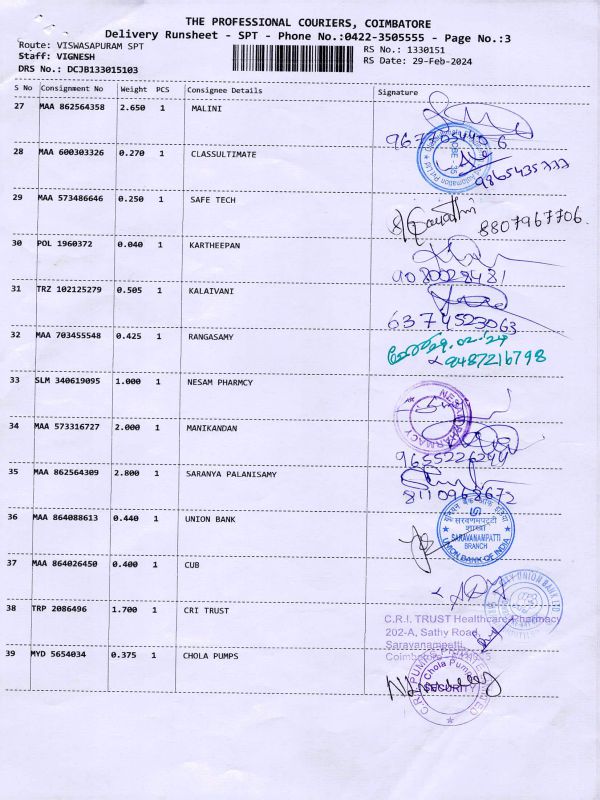 THE PROFESSIONAL COURIERS, COIMBATORE
Delivery Runsheet - SPT - Phone No.:0422-3505555 - Page No.:3
Route: VISWASAPURAM SPT
RS No.: 1330151
Staff: VIGNESH
RS Date: 29-Feb-2024
DRS No.: DCJB133015103
S No Consignment No Weight PCS Consignee Details Signature
27 MAA 862564358 2.650 1 MALINI
28 MAA 600303326 0.270 1 CLASSULTIMATE
9865435777
29 MAA 573486646 0.250 1 SAFE TECH
8807967706.
30 POL 1960372 0.040 1 KARTHEEPAN
31 TRZ 102125279 0.505 1 KALAIVANI
6374523063
32 MAA 703455548 0.425 1 RANGASAMY
9487216798
33 SLM 340619095 1.000 1 NESAM PHARMCY
NESAM PHARMACY
34 MAA 573316727 2.000 1 MANIKANDAN
9655226244
35 MAA 862564309 2.800 1 SARANYA PALANISAMY
8110968672
36 MAA 864088613 0.440 1 UNION BANK
शाखा
SARAVANAMPATTI
BRANCH
UNION BANK OF INDIA
37 MAA 864026450 0.400 1 CUB
CITY UNION BANK LTD
38 TRP 2086496 1.700 1 CRI TRUST
C.R.I. TRUST Healthcare Pharmacy
202-A, Sathy Road,
Saravanampatti,
39 MYD 5654034 0.375 1 CHOLA PUMPS
C.R.I. PUMPS PRIVATE LIMITED
Chola Pump
SECURITY